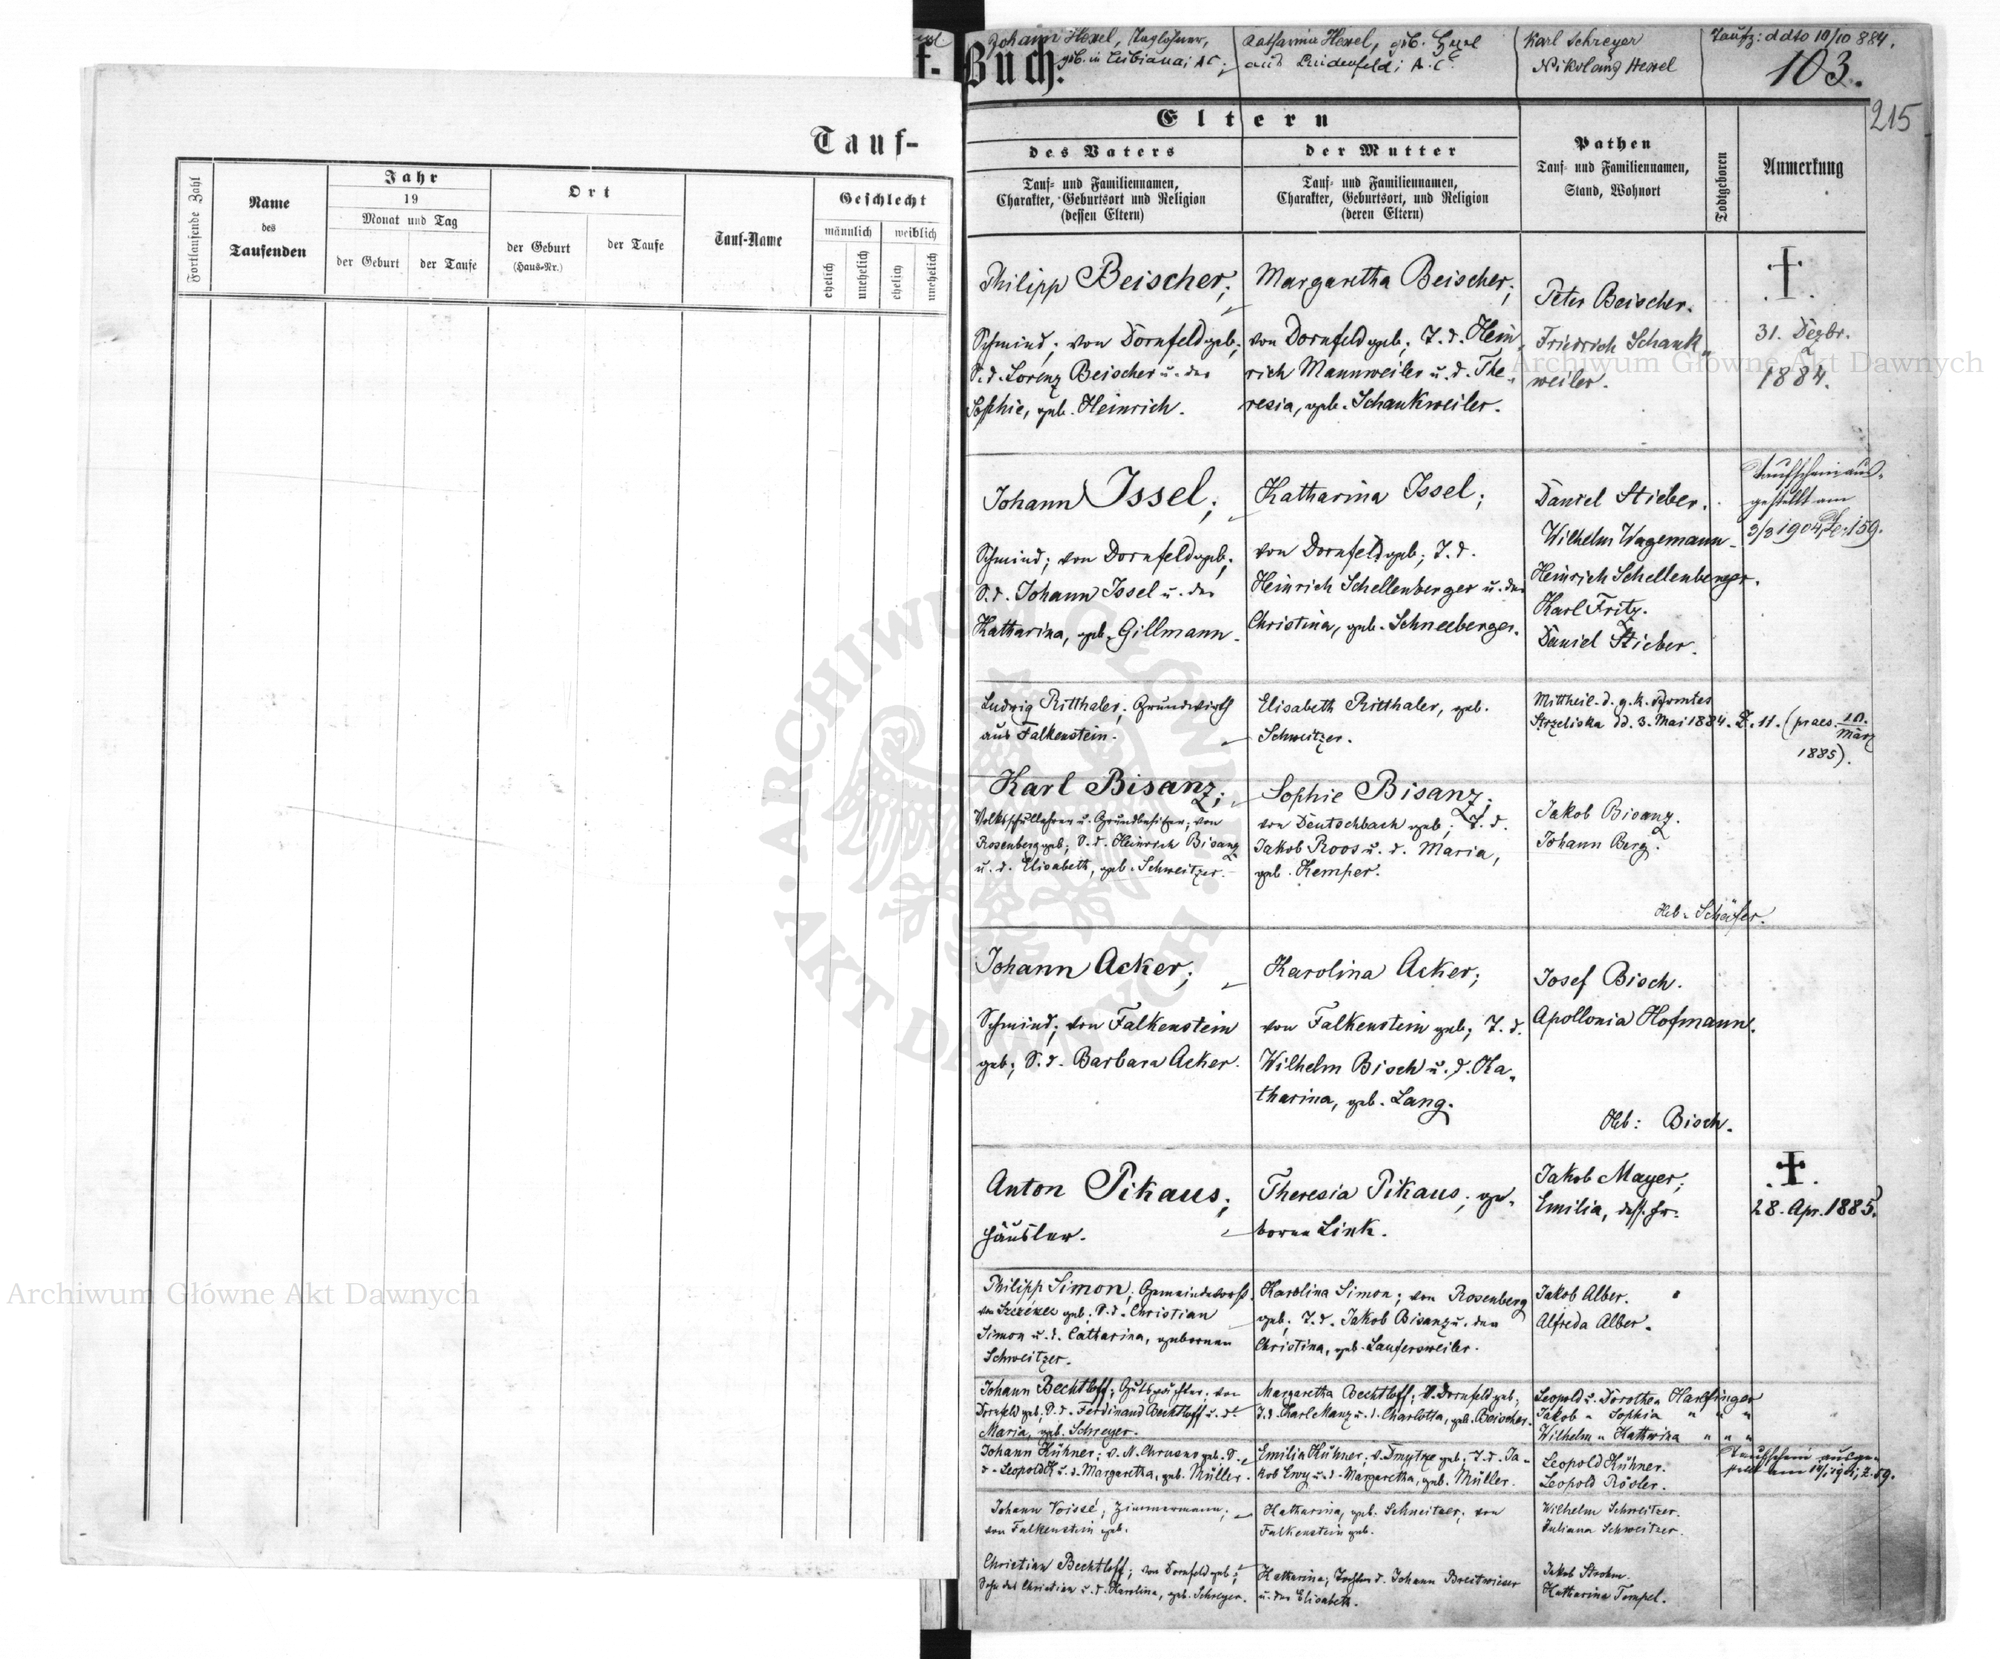 Tauf-
Fortlaufende Zahl
Name
des
Taufenden
Jahr
19
Monat und Tag
der Geburt
der Taufe
Ort
der Geburt
(Haus-Nr.)
der Taufe
Tauf-Name
Geschlecht
männlich
weiblich
ehelich
unehelich
ehelich
unehelich
Buch.
Johann Hexel, Taglöhner,
geb. in A.C.;
Katharina Hexel, geb.
aus Lindenfeld; A.C.
Karl Schreyer
Nikolaus Hexel
Taufz: ddto 10/10 884.
103.
215
Eltern
des Vaters
der Mutter
Tauf- und Familiennamen,
Charakter, Geburtsort und Religion
(dessen Eltern)
Tauf- und Familiennamen,
Charakter, Geburtsort, und Religion
(deren Eltern)
Pathen
Tauf- und Familiennamen,
Stand, Wohnort
Todtgeboren
Anmerkung
Philipp Beischer;
Schmied; von Dornfeld geb;
S.d. Lorenz Beischer u. der
Sophie, geb. Heinrich.
Margaretha Beischer;
von Dornfeld geb; T.d. Hein-
rich Mannweiler u.d. The-
resia, geb. Schankweiler.
Peter Beischer.
Friedrich Schank-
weiler.
31. Dezbr.
1884.
Johann Issel;
Schmied; von Dornfeld geb;
S.d. Johann Issel u. der
Katharina, geb. Gillmann.
Katharina Issel;
von Dornfeld geb; T.d.
Heinrich Schellenberger u. der
Christina, geb. Schneeberger.
Daniel Stieber.
Wilhelm Wagemann.
Heinrich Schellenberger.
Karl Fritz.
Daniel Stieber.
Taufschein aus-
gestellt am
3/3 1904 159.
Ludwig Ritthaler; Grundwirth
aus Falkenstein.
Elisabeth Ritthaler, geb.
Schweitzer.
Mittheil. d. g.k.
Strzeliska dd. 3. Mai 1884. Z. 11. (praes. 10. März
1885).
Karl Bisanz;
Volksschullehrer u. Grundbesitzer; von
Rosenberg geb; S.d. Heinrich Bisanz
u.d. Elisabeth, geb. Schweitzer.
Sophie Bisanz;
von Deutschbach geb; T.d.
Jakob Roos u.d. Maria,
geb. Kemper.
Jakob Bisanz.
Johann Berg.
Heb. Schäfer.
Johann Acker;
Schmied; von Falkenstein
geb; S.d. Barbara Acker.
Karolina Acker;
von Falkenstein geb; T.d.
Wilhelm Bisch u.d. Ka-
tharina, geb. Lang.
Josef Bisch.
Apollonia Hofmann.
Heb: Bisch.
Anton Pikaus;
Häusler.
Theresia Pikaus; ge-
borne Link.
Jakob Mayer;
Emilia, dess. Fr.
28. Apr. 1885.
Philipp Simon;
von Szczerzec geb; S.d. Christian
Simon u.d. Catharina, gebornen
Schweitzer.
Karolina Simon; von Rosenberg
geb; T.d. Jakob Bisanz u. der
Christina, geb. Laufersweiler.
Jakob Alber.
Alfreda Alber.
Johann Bechtloff; Gutspächter; von
Dornfeld geb; S.d. Ferdinand Bechtloff u. d.
Maria, geb. Schreyer.
Margaretha Bechtloff; v. Dornfeld geb;
T.d. Karl Manz u.d. Charlotta, geb. Beischer.
Leopold u. Dorothea Harlfinger
Jakob " Sophia " "
Wilhelm " Katharina " "
Johann Hühner; v. N. Chrusno geb. S.
d. Leopold H. u.d. Margaretha, geb. Müller.
Emilia Hühner; v. Dmytrze geb; T.d. Ja-
kob Enzy u.d. Margaretha, geb. Müller.
Leopold Hühner.
Leopold Rösler.
Taufschein ausge-
stellt am Z. 59.
Johann Voissé; Zimmermann;
von Falkenstein geb.
Katharina, geb. Schneitzer; von
Falkenstein geb.
Wilhelm Schweitzer.
Juliana Schweitzer.
Christian Bechtloff; von Dornfeld geb;
Sohn des Christian u.d. Karolina, geb. Schreyer.
Katharina; Tochter d. Johann Breitwieser
u. der Elisabeth.
Jakob Strohm.
Katharina Tempel.
Archiwum Główne Akt Dawnych
Archiwum Główne Akt Dawnych
ARCHIWUM GŁÓWNE AKT DAWNYCH